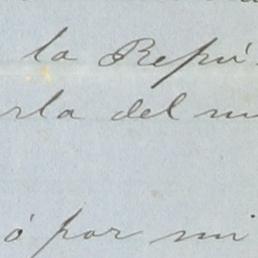 la Repú-
rla del m
ó por mi